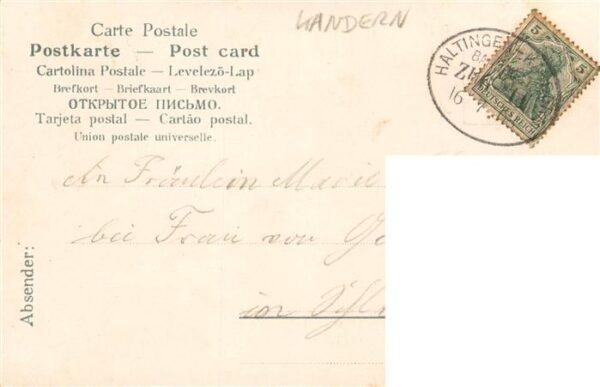 KANDERN
Carte Postale
Postkarte — Post card
Cartolina Postale — Levelező-Lap
Brefkort — Briefkaart — Brevkort
ОТКРЫТОЕ ПИСЬМО.
Tarjeta postal — Cartão postal.
Union postale universelle.
HALTINGE
16
5 5
DEUTSCHES REICH
An Fräulein Marie
bei Frau von
in
Absender: